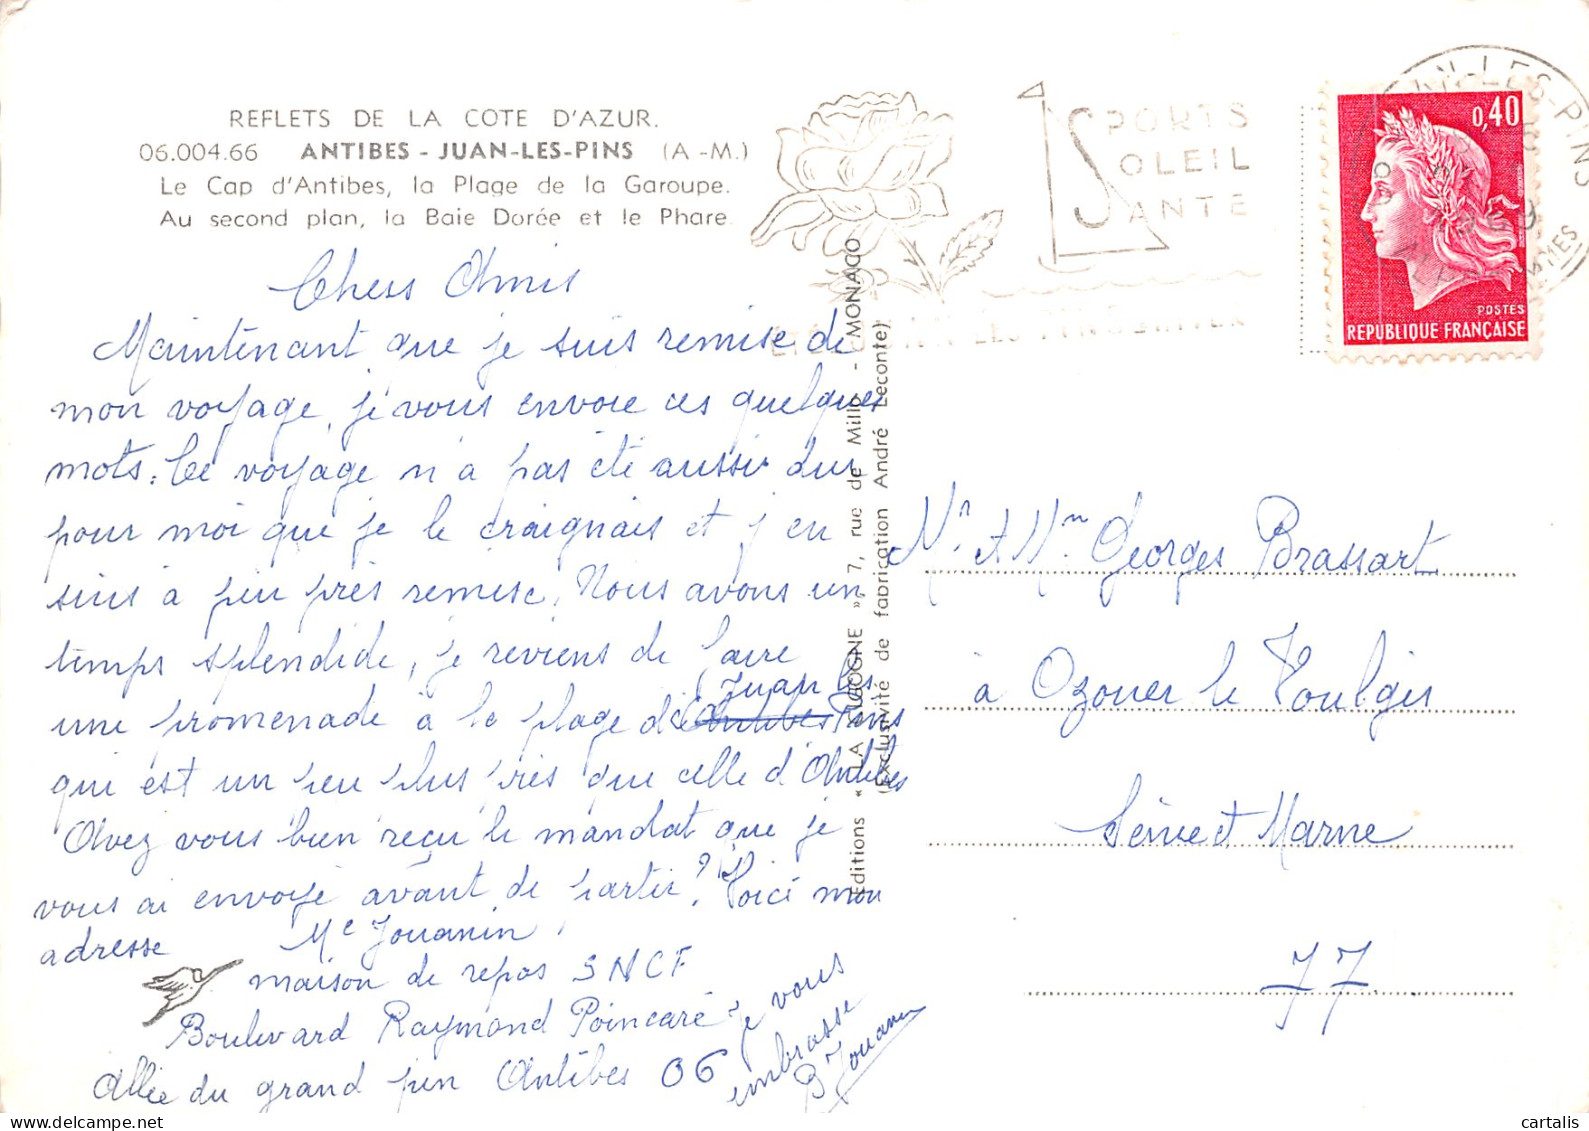 REFLETS DE LA COTE D'AZUR.
06.004.66 ANTIBES - JUAN-LES-PINS (A.-M.)
Le Cap d'Antibes, la Plage de la Garoupe.
Au second plan, la Baie Dorée et le Phare.
Chers Amis
Maintenant que je suis remise de
mon voyage, je vous envoie ces quelques
mots. Ce voyage n'a pas été aussi dur
pour moi que je le craignais et j'en
suis à peu près remise. Nous avons un
temps splendide, je reviens de faire
une promenade à la plage de Juan les Pins
qui est un peu plus près que celle d'Antibes
Avez vous bien reçu le mandat que je
vous ai envoyé avant de partir? Voici mon
adresse Me Jouanin
maison de repos SNCF
Boulevard Raymond Poincaré
Allée du grand pin Antibes 06
je vous
embrasse
Jouanin
Editions « LA CIGOGNE », 7, rue de Millo - MONACO
(Exclusivité de fabrication André Leconte)
SPORTS
SOLEIL
SANTE
JUAN-LES-PINS
0,40
POSTES
REPUBLIQUE FRANÇAISE
Mr et Mme Georges Brassart
à Ozouer le Voulgis
Seine et Marne
77
cartalis